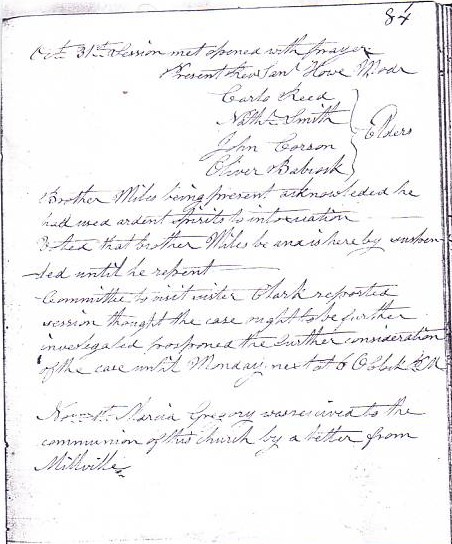 84
Oct 31st Session met opened with prayer
Present Rev Howe Modr
Carlo Reed
Nathl Smith
John Corson
Oliver Babcock
Elders
Brother Miles being present acknowleded he
had used ardent spirits to intoxication
Voted that brother Miles be and is here by suspen
ded until he repent
Committee to visit sister Clark reported
session thought the case ought to be further
investegated postponed the further consideration
of the case until Monday next at 6 O Clock
Marcia Gregory was recived to the
communion of this church by a letter from
Millville